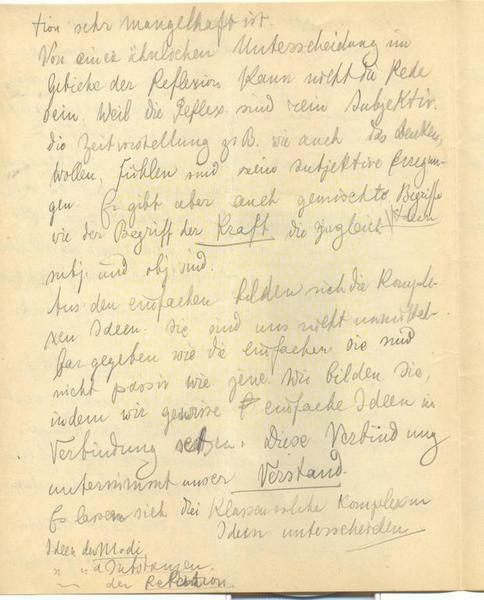 tion sehr mangelhaft ist.
Von einer ähnlichen Unterscheidung im
Gebiete der Reflexion kann nicht die Rede
sein. Weil die Reflex. sind rein subjektiv.
die Zeitvorstellung z.B. wie auch das Denken,
Wollen, Fühlen sind reine subjektive Erregun-
gen. Es gibt aber auch gemischte Begriffe
wie der Begriff der Kraft die zugleich Ideen
subj. und obj. sind.
Aus den einfachen bilden sich die komple-
xen Ideen. Sie sind uns nicht unmittel-
bar gegeben wie die einfachen sie sind
nicht passiv wie jene. Wir bilden sie,
indem wir gewisse einfache Ideen in
Verbindung setzen. Diese Verbindung
unternimmt unser Verstand.
Es lassen sich drei Klassen solche komplexen
Ideen unterscheiden
Ideen der Modi
" " d Substanzen.
der Relation.